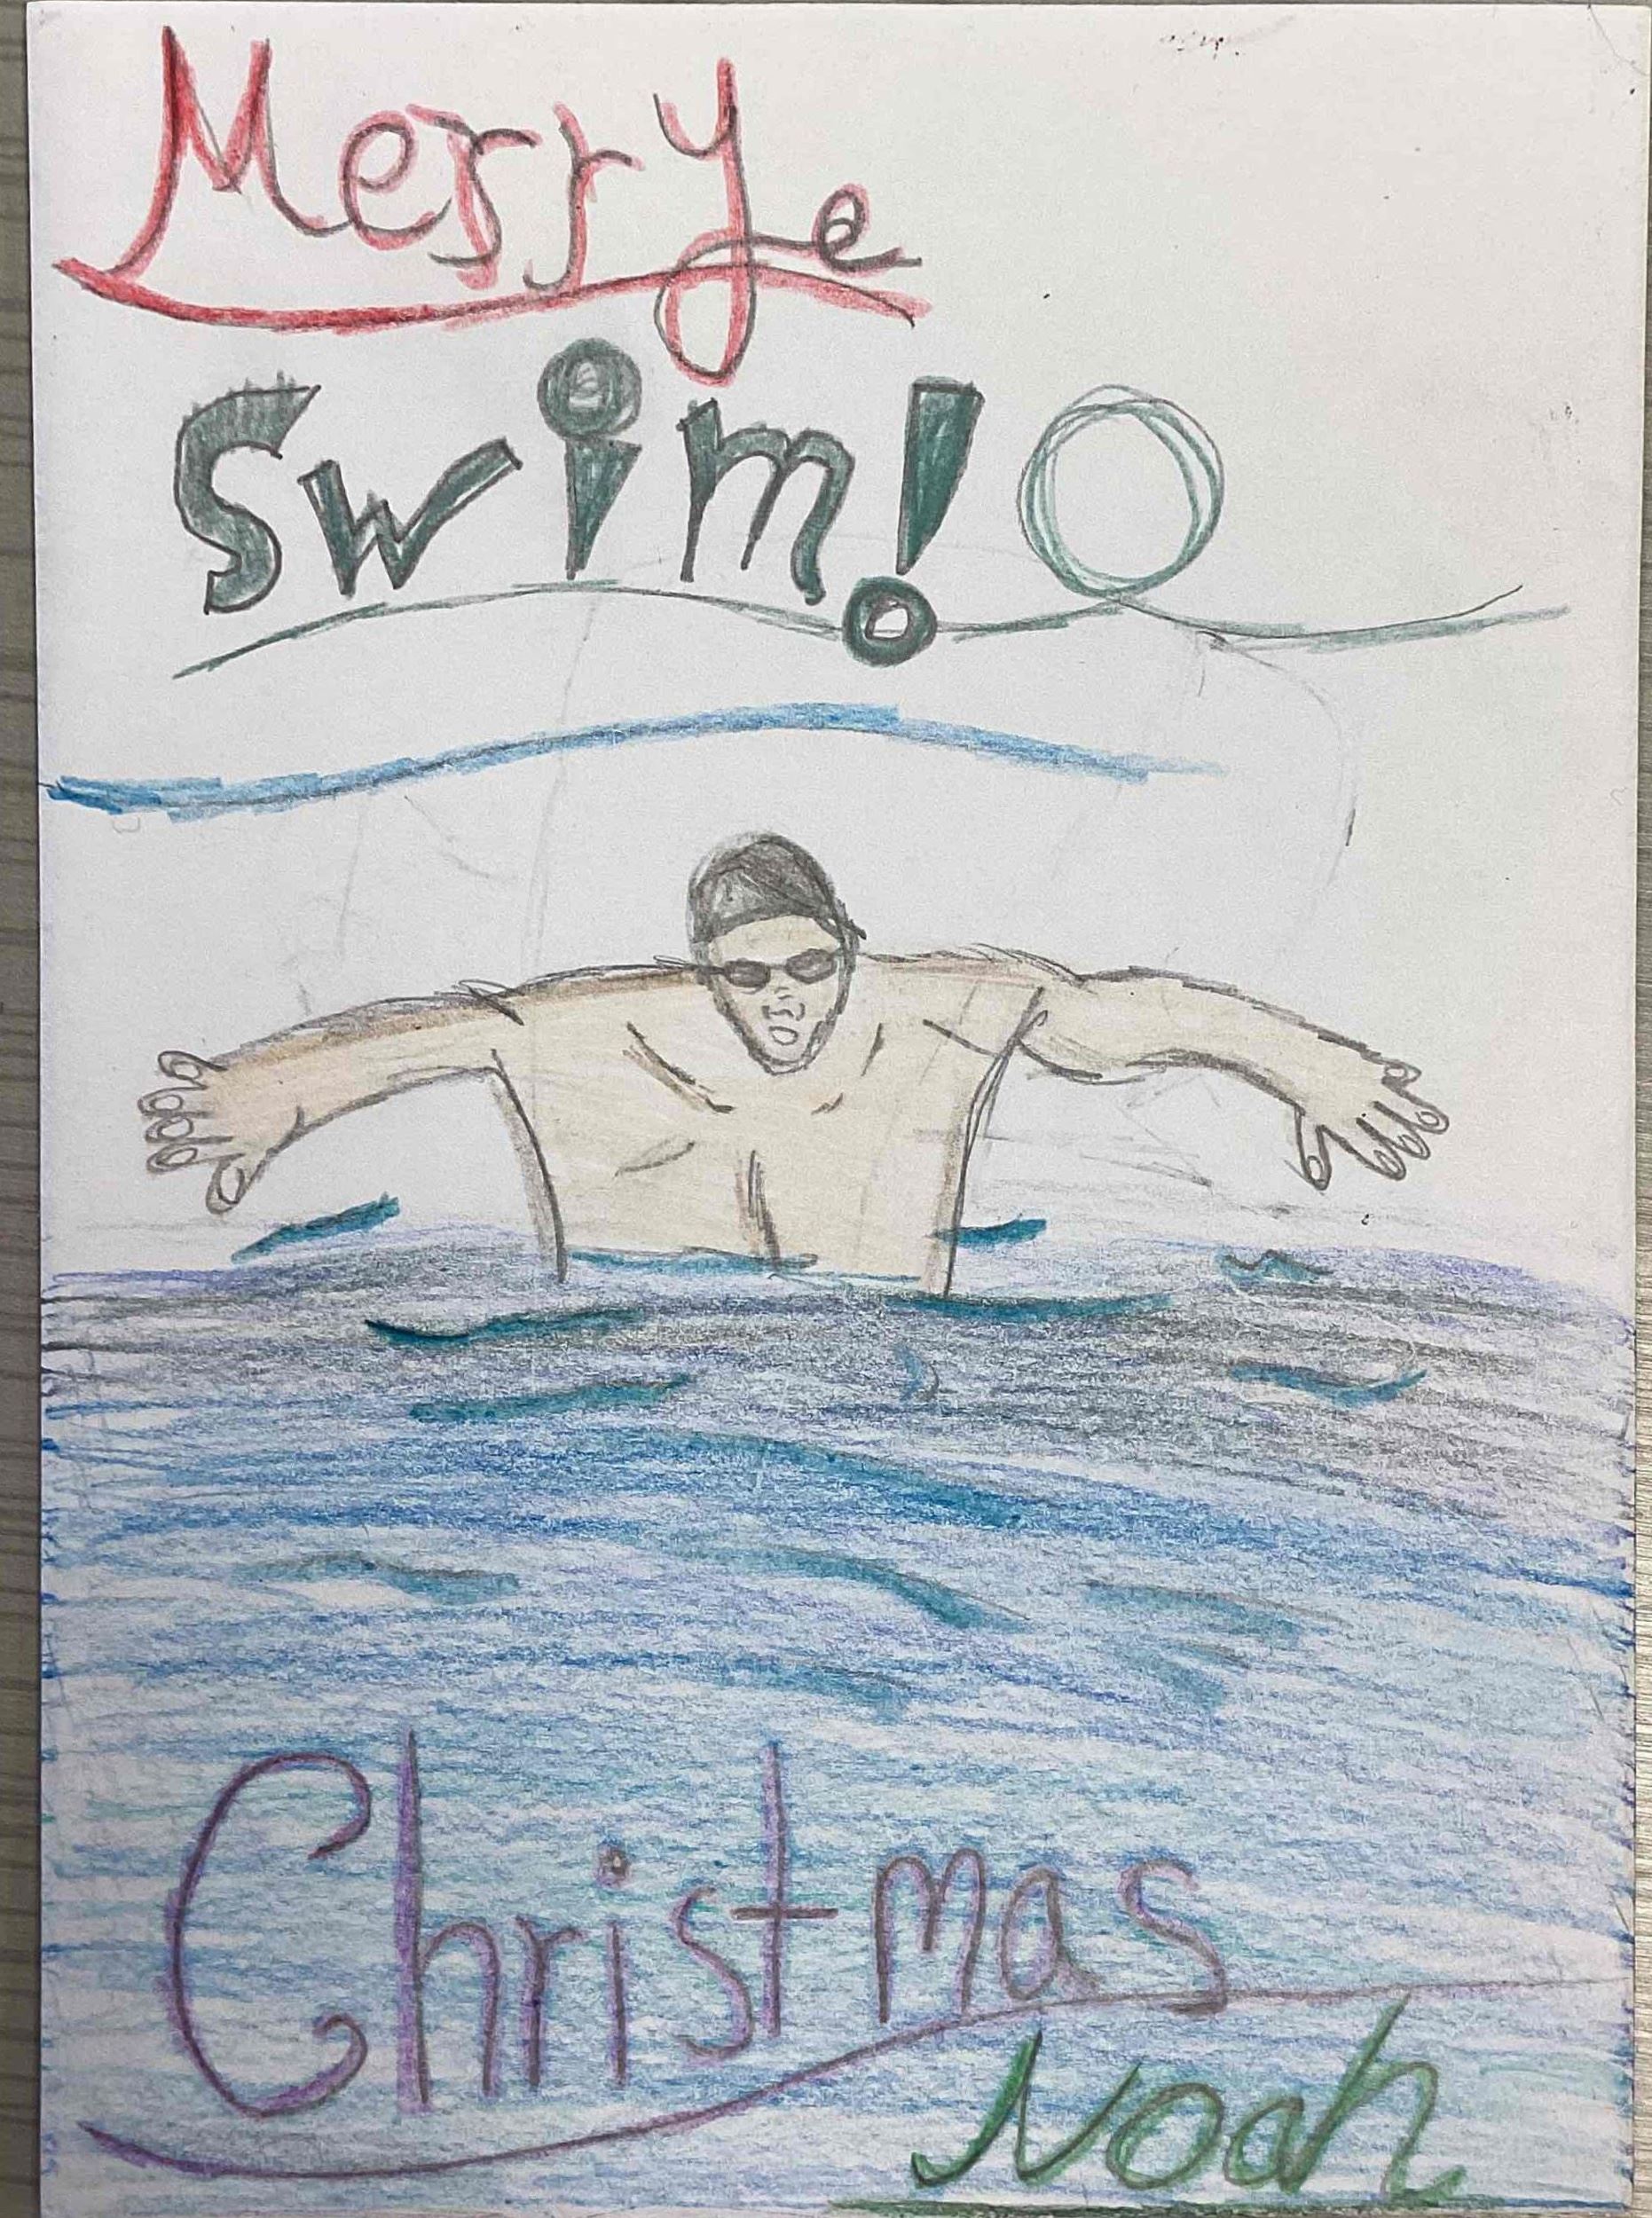 Merrye
Swim!
Christmas
Noah